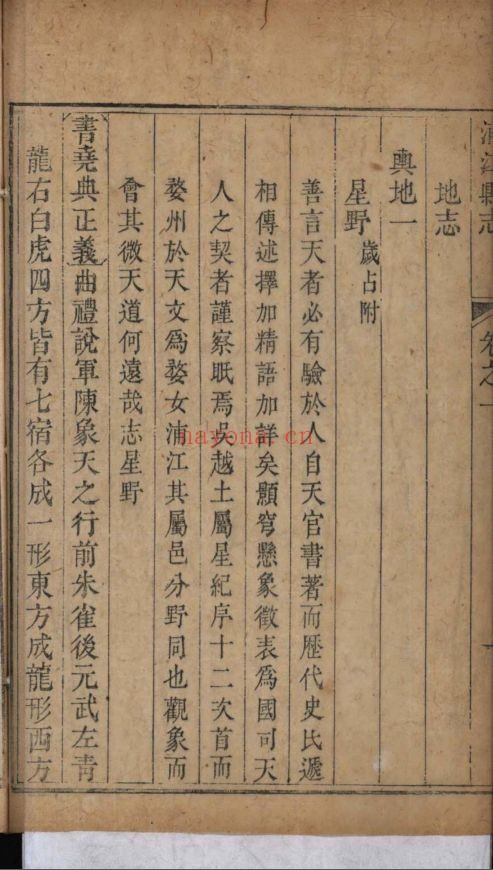 浦江縣志
卷之一
地志
輿地一
星野 歲占附
善言天者必有驗於人自天官書著而歷代史氏遞
相傳述擇加精語加詳矣顥穹懸象徵表為國司天
人之契者謹察眂焉吳越土屬星紀序十二次首而
婺州於天文為婺女浦江其屬邑分野同也觀象而
會其微天道何遠哉志星野
書堯典正義曲禮說軍陳象天之行前朱雀後元武左青
龍右白虎四方皆有七宿各成一形東方成龍形西方
nayona.cn